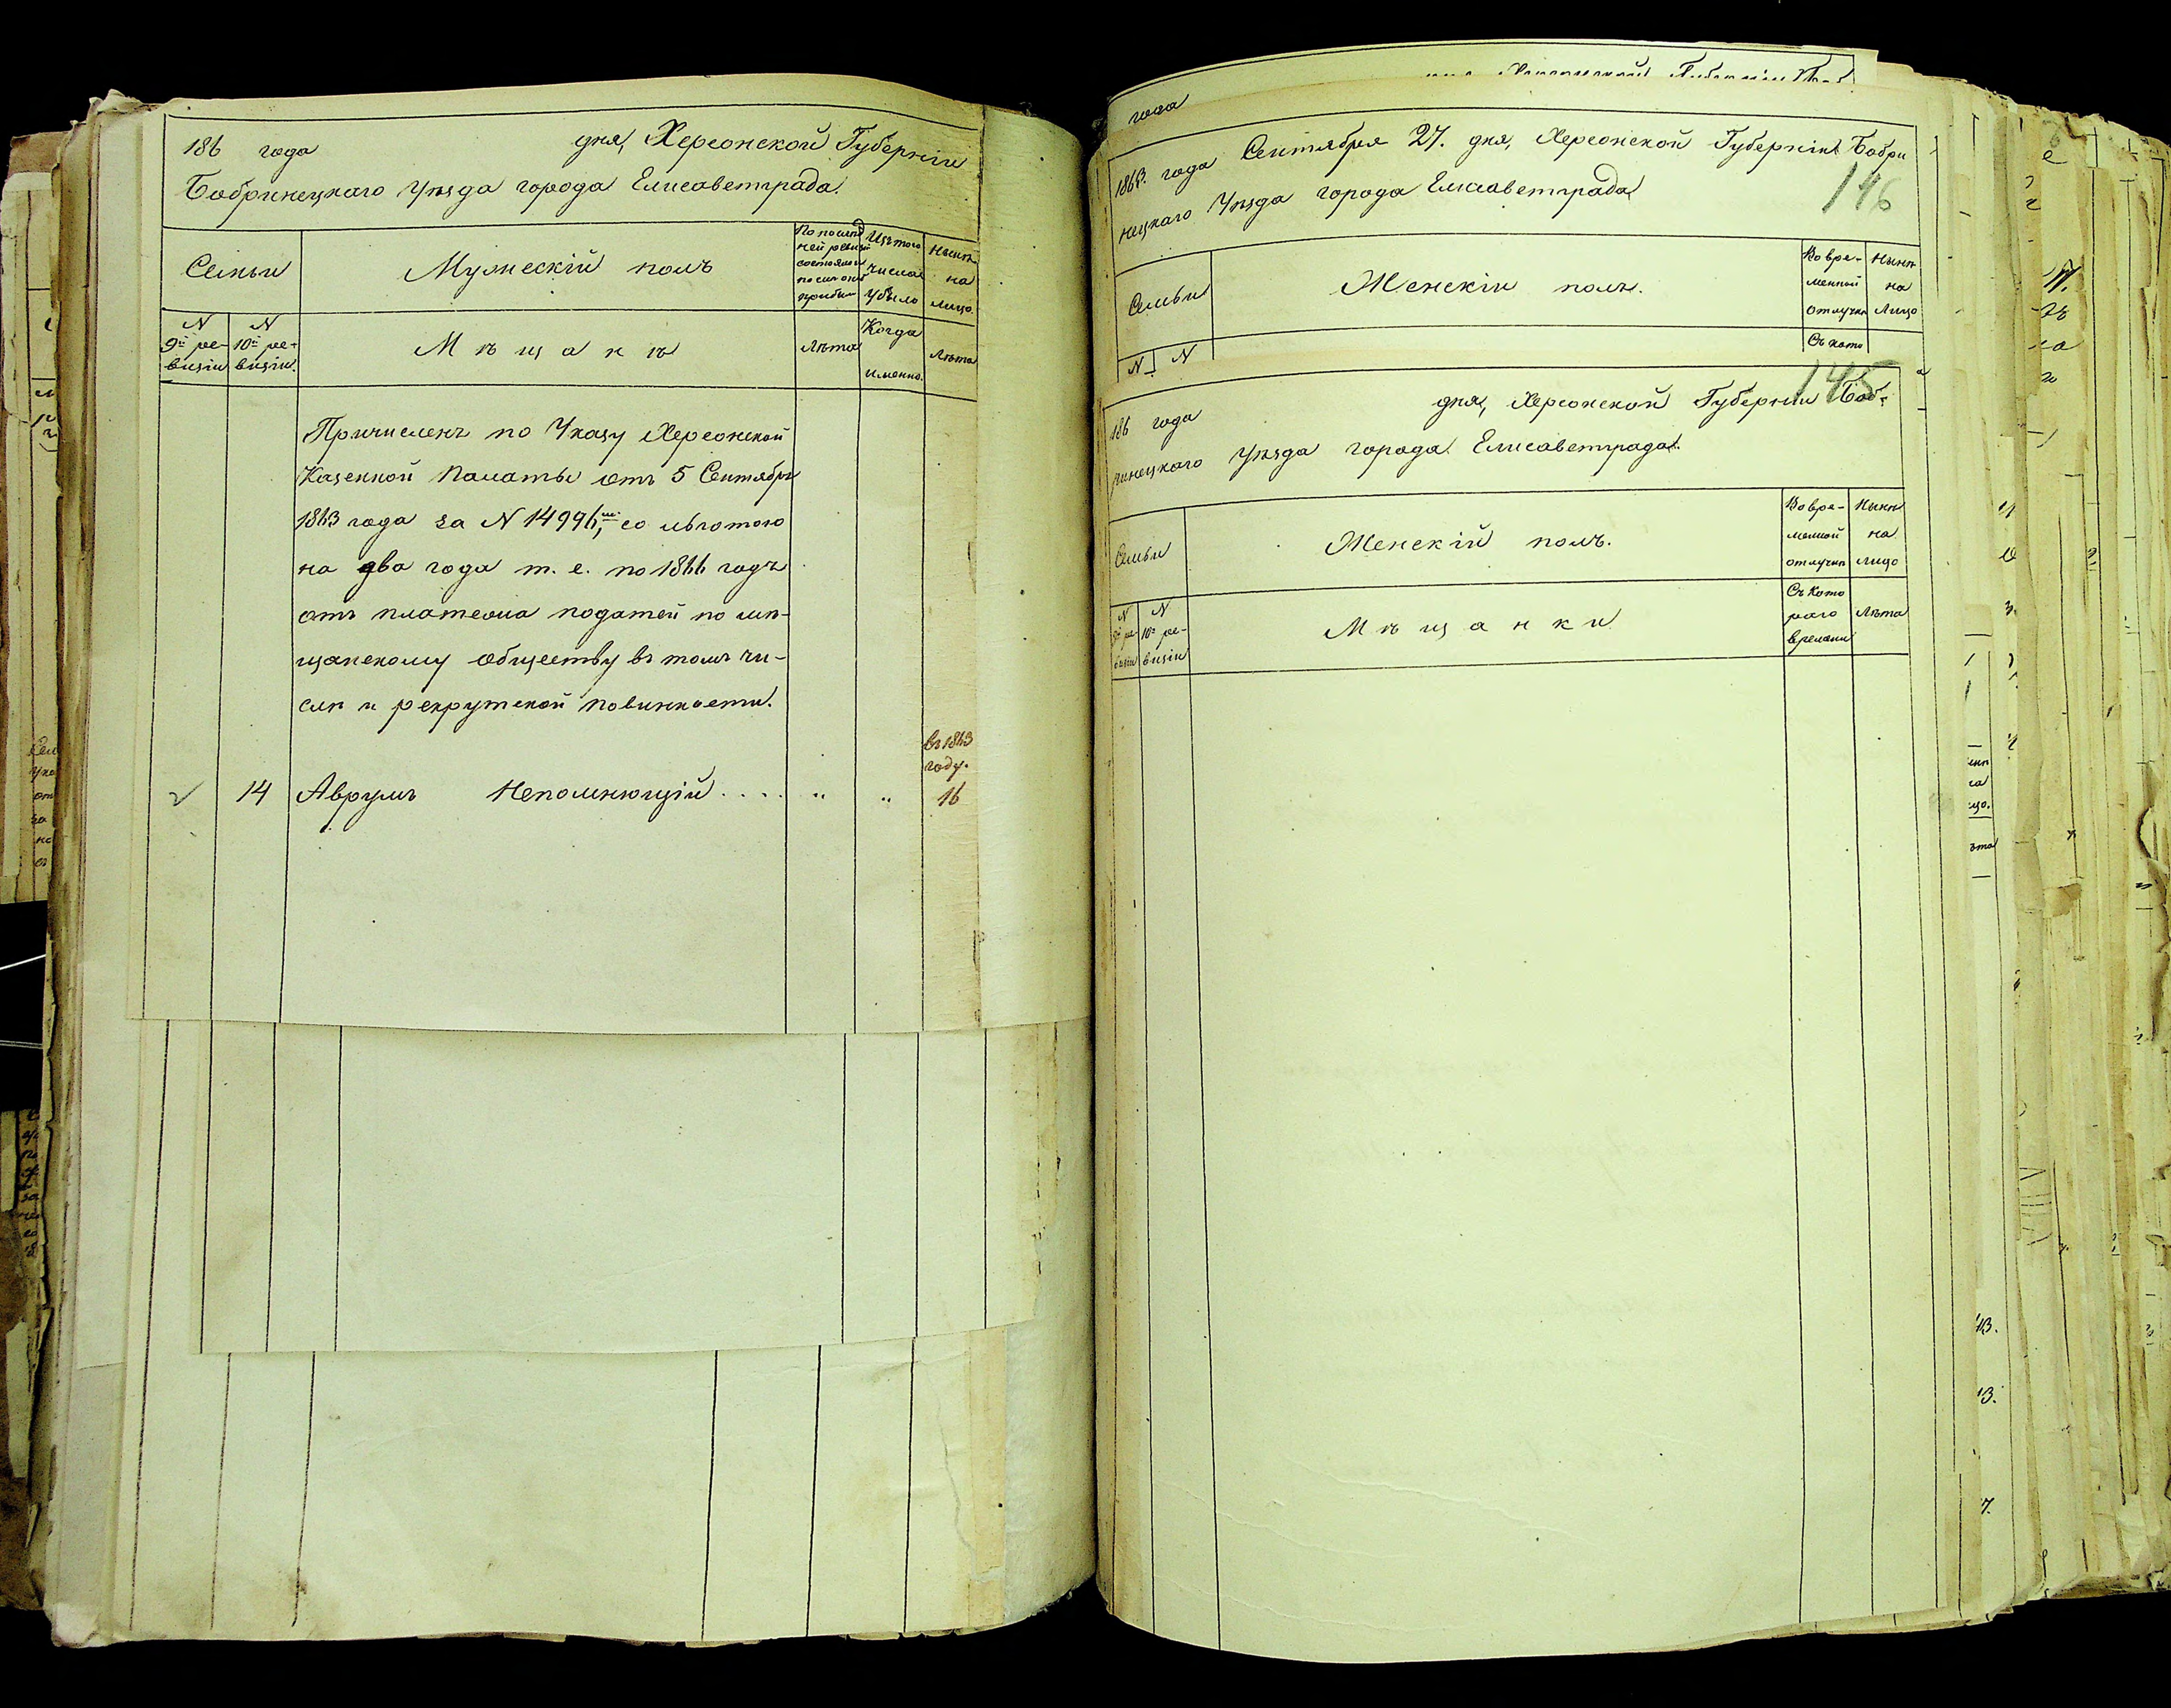 186 года дня, Херсонской Губерніи
Бобринецкаго Уѣзда города Елисаветграда.
Семьи
Мужескій полъ
По послѣд
ней ревизіи
состояло и
после оной
прибыло
Изъ того
числа
убыло
Нынѣ
на
лицо.
N
9й ре-
визіи
N
10й ре-
визіи.
Мѣщанъ
Лѣта
Когда
именно.
Лѣта
Причисленъ по Указу Херсонской
Казенной Палаты отъ 5 Сентября
1863 года за N 14996, со льготою
на два года т. е. по 1866 годъ
отъ платежа податей по мѣ-
щанскому обществу въ томъ чи-
слѣ и рекрутской повинности.
въ 1863
году.
14 Аврумъ Непомнющій . . . . „ „ 16
года
1863. года Сентября 27. дня, Херсонской Губерніи Бобри
нецкаго Уѣзда города Елисаветграда
146
Семьи
Женскій полъ.
Во вре-
менной
отлучкѣ
Нынѣ
на
лицо
N N
Съ кото
145
186 года дня, Херсонской Губерніи Боб-
ринецкаго Уѣзда города Елисаветграда.
Семьи
Женскій полъ.
Во вре-
менной
отлучкѣ
Нынѣ
на
лицо
N
9й ре-
визіи
N
10й ре-
визіи
Мѣщанки
Съ кото
раго
времени
Лѣта